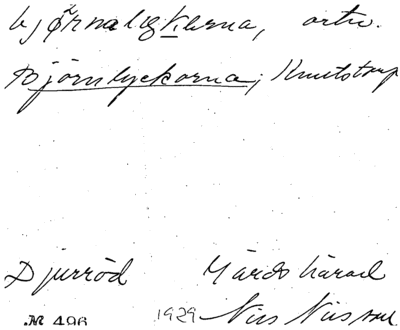 bjørnaligkårna, ortn.
Björnlyckorna; Knutstorp
Djurröd Gärds härad
№ 496 1929 Nils Nilsson